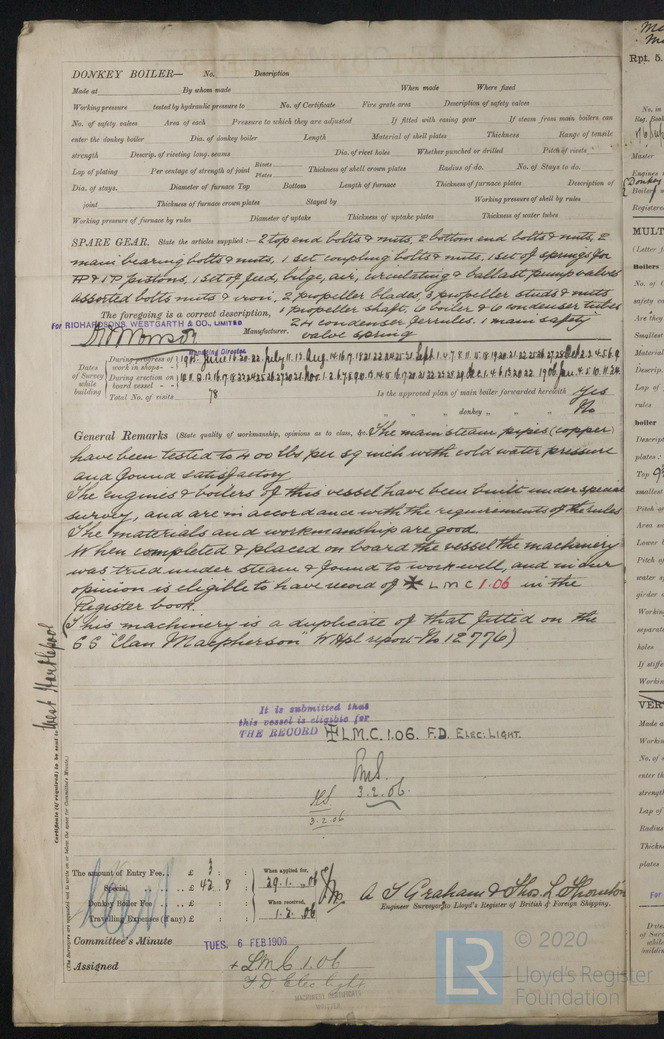 DONKEY BOILER— No. Description
Made at By whom made When made Where fixed
Working pressure tested by hydraulic pressure to No. of Certificate Fire grate area Description of safety valves
No. of safety valves Area of each Pressure to which they are adjusted If fitted with easing gear If steam from main boilers can
enter the donkey boiler Dia. of donkey boiler Length Material of shell plates Thickness Range of tensile
strength Descrip. of riveting long. seams Dia. of rivet holes Whether punched or drilled Pitch of rivets
Lap of plating Per centage of strength of joint Rivets Plates Thickness of shell crown plates Radius of do. No. of Stays to do.
Dia. of stays. Diameter of furnace Top Bottom Length of furnace Thickness of furnace plates Description of
joint Thickness of furnace crown plates Stayed by Working pressure of shell by rules
Working pressure of furnace by rules Diameter of uptake Thickness of uptake plates Thickness of water tubes
SPARE GEAR. State the articles supplied:— 2 top end bolts & nuts, 2 bottom end bolts & nuts, 2
main bearing bolts & nuts, 1 set coupling bolts & nuts, 1 set of springs for
HP & IP pistons, 1 set of feed, bilge, air, circulating & ballast pump valves
assorted bolts nuts & iron, 2 propeller blades, 3 propeller studs & nuts
The foregoing is a correct description, 1 propeller shaft, 6 boiler & 6 condenser tubes
For RICHARDSONS, WESTGARTH & CO., LIMITED Manufacturer. 24 condenser ferrules. 1 main safety
valve spring
Managing Director.
Dates of Survey while building
During progress of work in shops - -
During erection on board vessel - -
Total No. of visits 78
Is the approved plan of main boiler forwarded herewith Yes
" " " donkey " " " No
General Remarks (State quality of workmanship, opinions as to class, &c. The main steam pipes (copper)
have been tested to 400 lbs per sq inch with cold water pressure
and found satisfactory
The engines & boilers of this vessel have been built under special
survey, and are in accordance with the requirements of the rules
The materials and workmanship are good.
When completed & placed on board the vessel the machinery
was tried under steam & found to work well, and in our
opinion is eligible to have record of ✠ L M C 1.06 in the
Register book.
(This machinery is a duplicate of that fitted on the
SS "Clan Macpherson" W Hpl report No 12776)
West Hartlepool
Certificate (if required) to be sent to
(The Surveyors are requested not to write on or below the space for Committee's Minute.)
It is submitted that
this vessel is eligible for
THE RECORD ✠ L.M.C. 1.06. F.D. ELEC: LIGHT.
3.2.06.
3.2.06
The amount of Entry Fee.. £ 3 : :
Special .. .. £ 42 : 8 :
Donkey Boiler Fee .. .. £ : :
Travelling Expenses (if any) £ : :
When applied for, 29.1.06
When received, 1.2.06
A T Graham & Thos. L Thornton
Engineer Surveyor to Lloyd's Register of British & Foreign Shipping.
Committee's Minute TUES. 6 FEB 1906
Assigned + LMC 1.06
F.D. Elec light
MACHINERY CERTIFICATE
WRITTEN
LR © 2020
Lloyd's Register
Foundation
Rpt. 5.
No. in
Master
Engines
Donkey
Registered
MULT
(Letter f
Boilers
No. of
safety va
Are they
Smallest
Material
Descrip.
Lap of
rules
boiler
Descript
plates :
Top
smallest
Pitch of
Area
Lower
Pitch of
water
girder
Working
separate
holes
If stiffe
Workin
VER
Made a
Workin
No. of
enter th
strength
Lap of
Radius
Thickn
plates
For